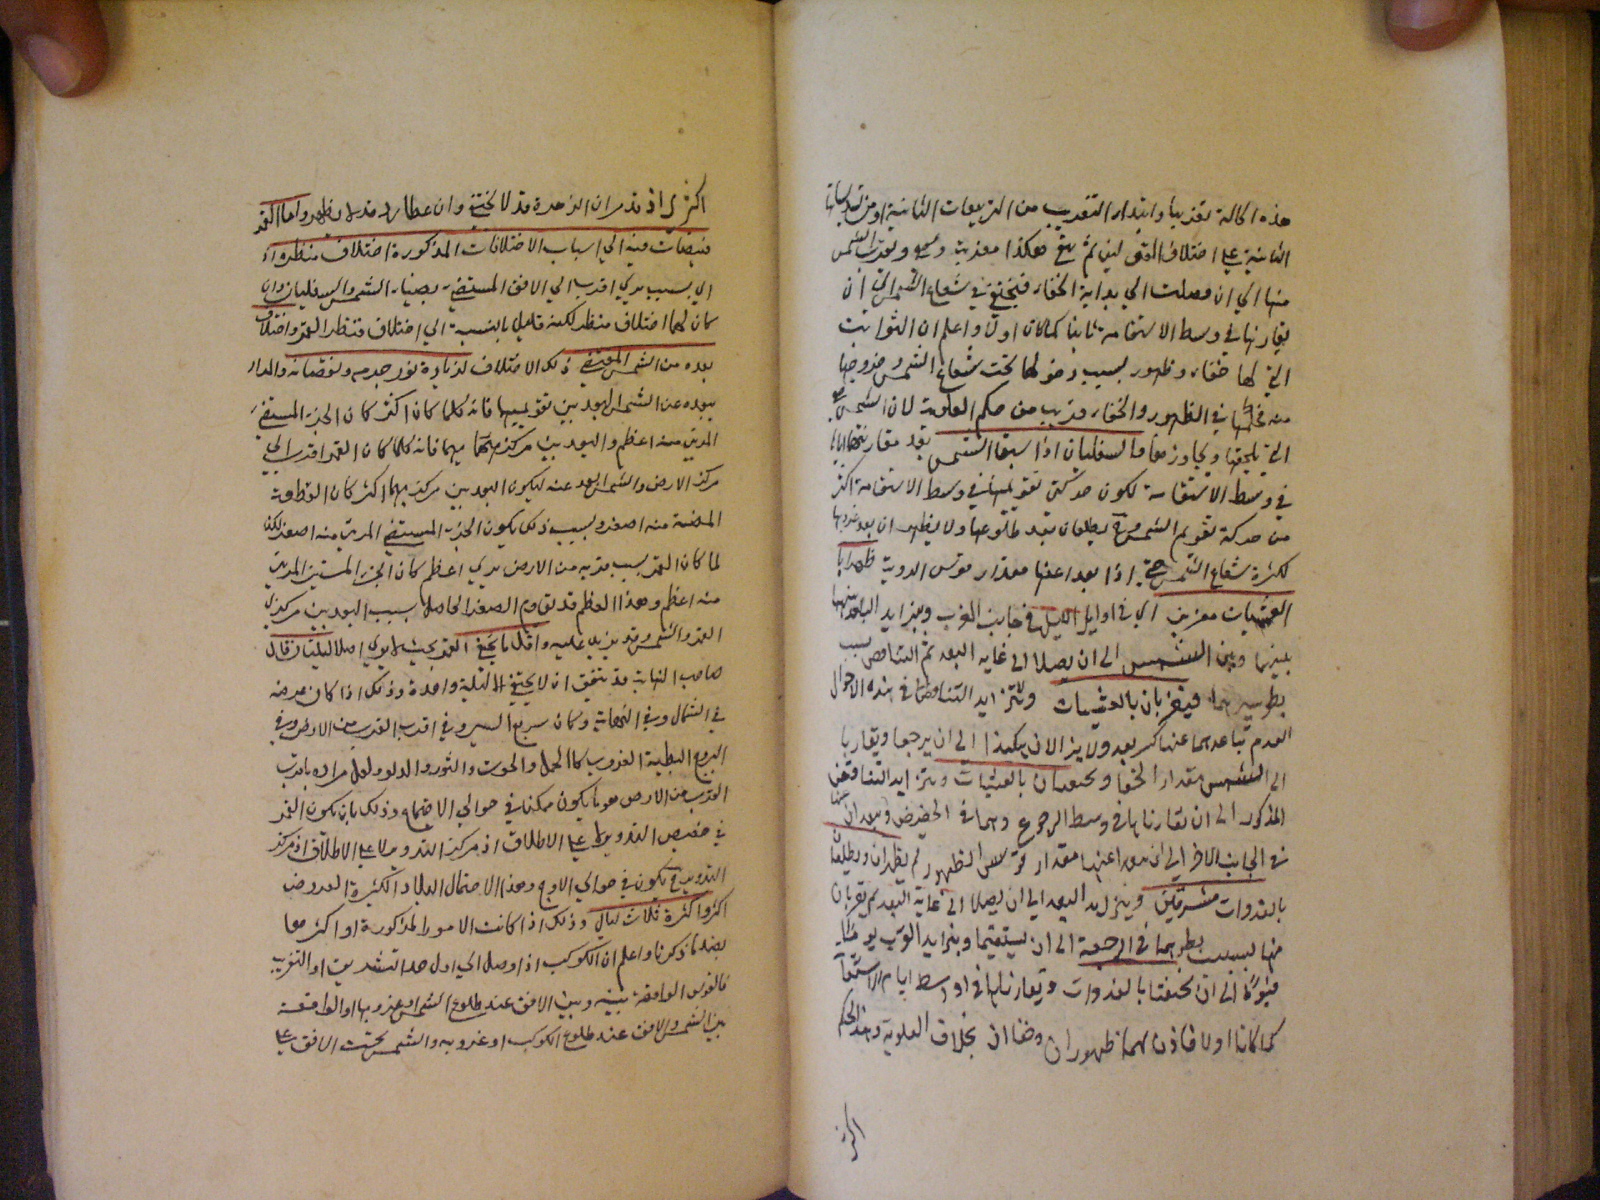 هذه الحالة تقريبا وابتداء التقريب من التربيعات الثانية او من تسديساتها
الثانية على اختلاف ثم يبقى هكذا مغربة ويقرب الشمس
منها الى ان وصلت الى بداية الخفاء فيختفى فى شعاع الشمس الى ان
يقارنها فى وسط الاستقامة ثانيا كما كان اولا واعلم ان الثوابت
التى لها خفاء وظهور بسبب دخولها تحت شعاع الشمس وخروجها
منه فحالها فى الظهور والخفاء قريب من حكم العلوية لان الشمس هى
التى تلحقها وتجاوز معها والسفليان اذا سبقا الشمس بعد مقارنتهما اياها
فى وسط الاستقامة لكون حركتى تقويميهما فى وسط الاستقامة اكثر
من حركة تقويم الشمس يطلعان بعد طلوعها ولا يظهران بعد غروبها
لكثرة شعاع الشمس حتى اذا بعدا عنها مقدار قوس الروية ظهرا با
العشيات مغربين اى فى اوايل الليل فى جانب الغرب ويتزايد البعد
بينهما وبين الشمس الى ان يصلا الى غاية البعد ثم التناقص بسبب
بطو سيرهما فيقربان بالعشيات ولا تتزايد التناقص فى هذه الاحوال
لعدم تباعدهما عنها كثير بعد ولا يزالان هكذا الى ان يرجعا ويقاربا
الى الشمس مقدار الخفا ويختفيان بالعشيات ويتزايد التناقص
المذكور الى ان يقارناها فى وسط الرجوع وهما فى الحضيض ويبعدان عنها
فى الجانب الاخر الى ان بعدا عنها مقدار قوس الظهور ثم يظهران ويطلعان
بالغدوات مشرقين ويتزايد البعد الى ان يصلا الى غاية البعد ثم يقربان
منها بسبب بطوهما فى الرجعة الى ان يستقيما ويتزايد القرب يوما
فيوما الى ان يختفيا بالغدوات ويقارناها فى اواسط ايام الاستقامة
كما كانا اولا فاذن لهما ظهوران وخفاان بخلاف العلوية وهذا الحكم
اكثرى
اكثرى اذ قد مر ان الزهرة قد لا يختفى وان عطارد قد لا يظهر واما القمر
فيضاف فيه الى اسباب الاختلافات المذكورة اختلاف منظره اذ
به بسبب يرى اقرب الى الافق المستضئ بضياء الشمس والسفليان وان
كان لهما اختلاف منظر لكنه قليل بالنسبة الى اختلاف منظر القمر واختلاف
بعده من الشمس المقتضى ذلك الاختلاف لزيادة نور جرمه ونقصانه والمراد
ببعده عن الشمس البعد بين تقويميهما فانه كلما كان اكثر كان الجزء المستضئ
المرئى منه اعظم والبعد بين مركزيهما فانه كلما كان القمر اقرب الى
مركز الارض والشمس ابعد عنه ليكون البعد بين مركزيهما اكثر كان القطعة
المضيئة منه اصغر وبسبب ذلك يكون الجزء المستضئ المرئى منه اصغر لكن
لما كان القمر بسبب قربه من الارض يرى اعظم كان الجزء المستنير المرئى
منه اعظم وهذا العظم قد يقاوم الصغر الحاصل بسبب البعد بين مركزى
القمر والشمس وقد يزيد عليه واقل ما يختفى القمر بحيث لا يرى اصلا ليلتان قال
صاحب النهاية قد يتفق ان لا يختفى الا ليلة واحدة وذلك اذا كان عرضه
فى الشمال وفى النهاية وكان سريع السير وفى اقرب القرب من الارض وفى
البروج البطية الغروب كالحمل والحوت والثور والدلو ولعل مراده باقرب
القرب من الارض هو ما يكون ممكنا فى حوالى الاجتماع وذلك بان يكون القمر
فى حضيض التدوير لا على الاطلاق اذ مركز التدوير لا على الاطلاق اذ مركز
التدوير يكون فى حوالى الاوج وهذا الاحتمال البلاد الكثيرة العروض
اكثر واكثره ثلاث ليال وذلك اذا كانت الامور المذكورة او اكثرها
بضد ما ذكرنا واعلم ان الكوكب اذا وصل الى اول حد التشريق او التغريب
فالقوس الواقعة بينه وبين الافق عند طلوع الشمس او غروبها او الواقعة
بين الشمس والافق عند طلوع الكوكب او غروبه والشمس تحت الافق على